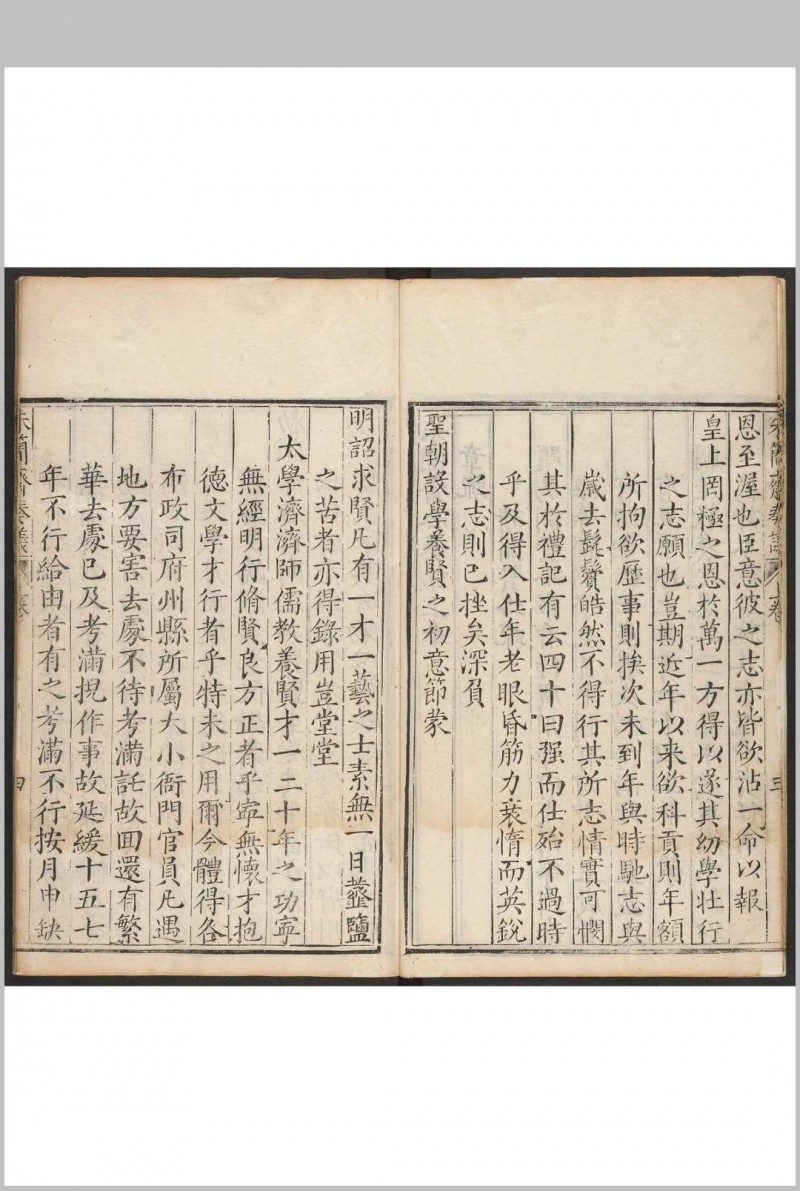 恩至渥也臣意彼之志亦皆欲沾一命以報
皇上罔極之恩於萬一方得以遂其幼學壯行
之志願也豈期近年以来欲科貢則年額
所拘欲歷事則挨次未到年與時馳志與
嵗去髭鬢皓然不得行其所志情實可憫
其於禮記有云四十曰强而仕殆不過時
乎及得入仕年老眼昏筋力衰惰而英銳
之志則已挫矣深負
聖朝設學養賢之初意節蒙
明詔求賢凡有一才一藝之士素無一日虀鹽
之苦者亦得錄用豈堂堂
太學濟濟師儒教養賢才一二十年之功寜
無經明行脩賢良方正者乎寜無懷才抱
德文學才行者乎特未之用爾今體得各
布政司府州縣所屬大小衙門官員凡遇
地方要害去處不待考滿託故囬還有繁
華去處巳及考滿捏作事故延緩十五七
年不行給由者有之考滿不行按月申缺
朱簡齋奏議 卷 四